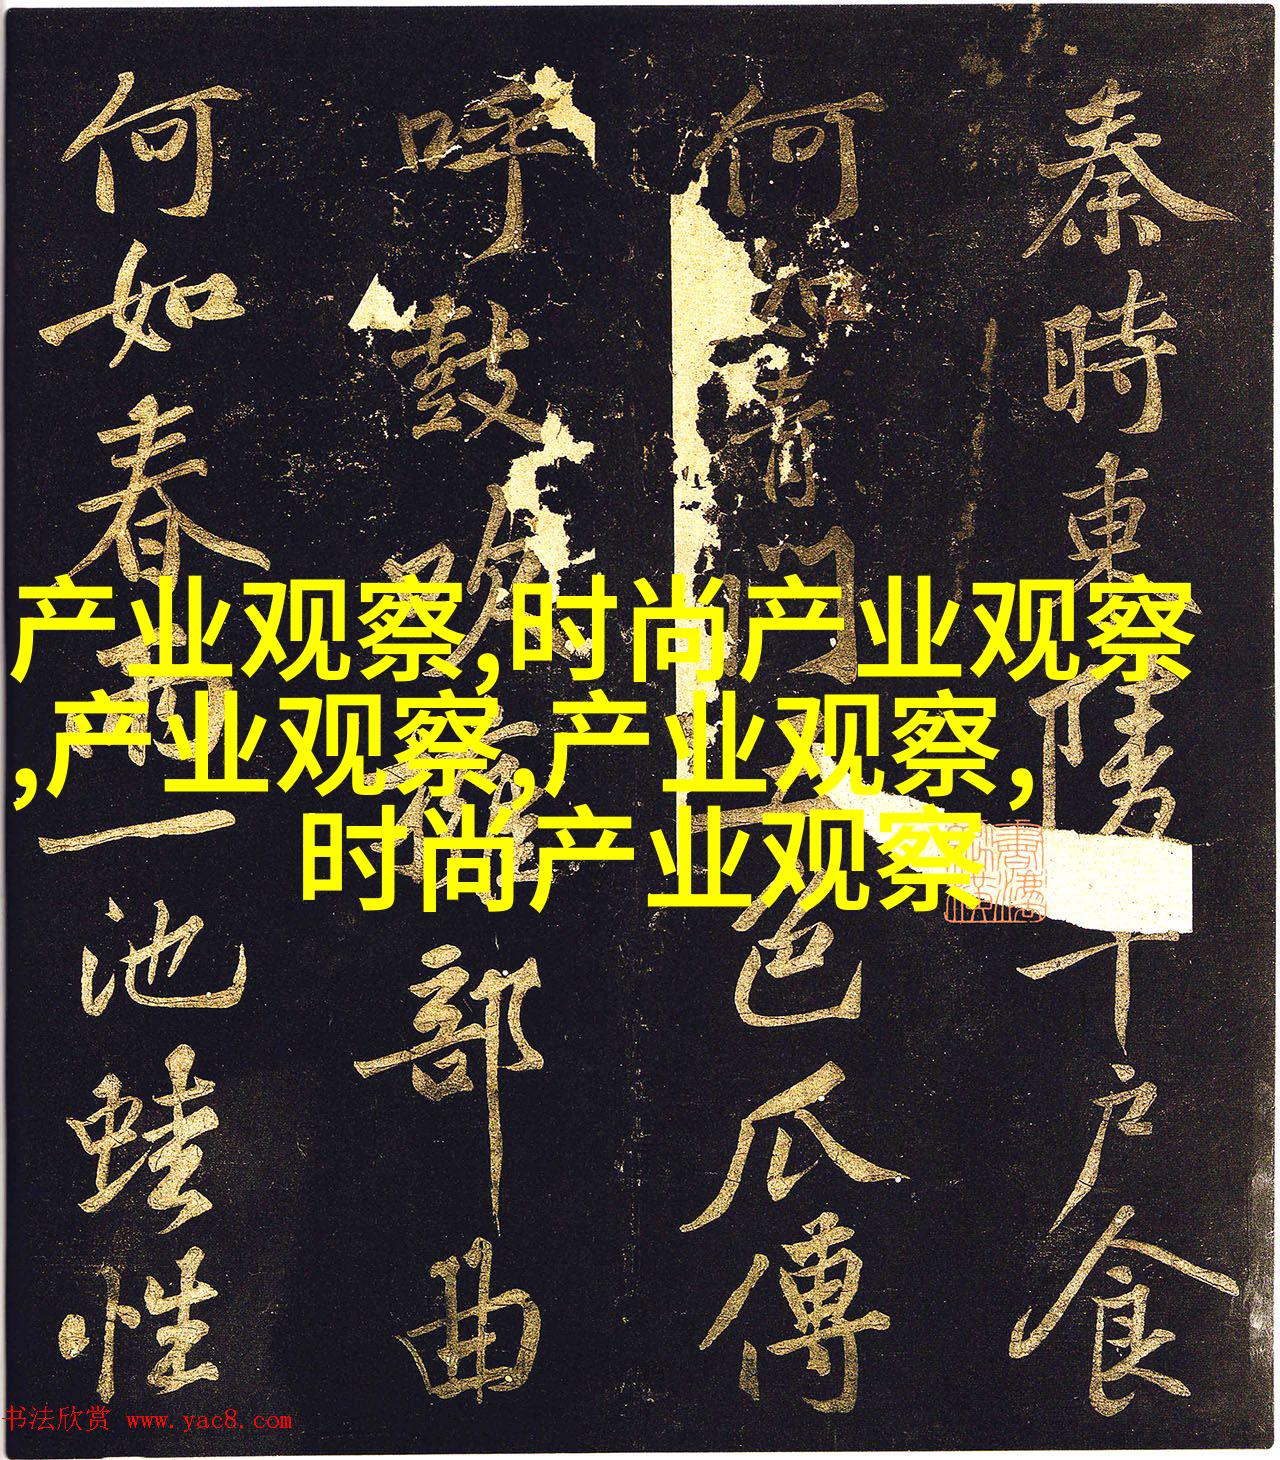 秦時東陵千戶食
何如青門五色瓜傳
呼鼓吹部曲
何如春雨一池蛙性
产业观察,时尚产业观察
,产业观察,产业观察,
时尚产业观察
书法欣赏 www.yac8.com